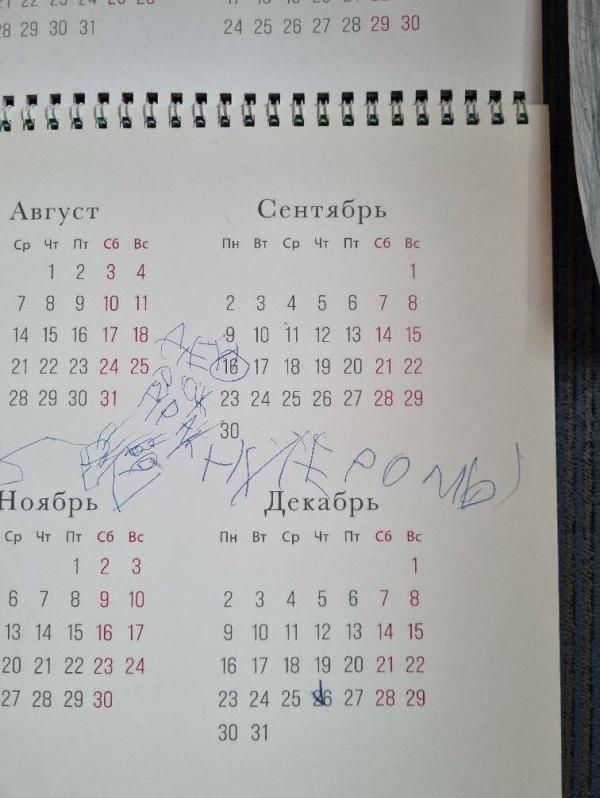 28 29 30 31
24 25 26 27 28 29 30
Август
Ср Чт Пт Сб Вс
1 2 3 4
7 8 9 10 11
14 15 16 17 18
21 22 23 24 25
28 29 30 31
Сентябрь
Пн Вт Ср Чт Пт Сб Вс
1
2 3 4 5 6 7 8
9 10 11 12 13 14 15
16 17 18 19 20 21 22
23 24 25 26 27 28 29
30
Ноябрь
Ср Чт Пт Сб Вс
1 2 3
6 7 8 9 10
13 14 15 16 17
20 21 22 23 24
27 28 29 30
Декабрь
Пн Вт Ср Чт Пт Сб Вс
1
2 3 4 5 6 7 8
9 10 11 12 13 14 15
16 17 18 19 20 21 22
23 24 25 26 27 28 29
30 31